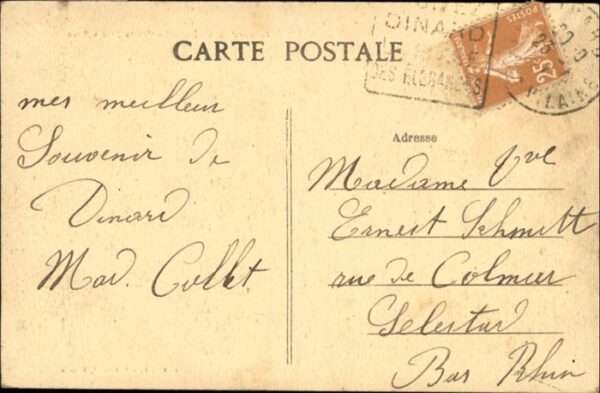 DINARD
DES ÉLÉGANCES
POSTES
25
CARTE POSTALE
mes meilleur
Souvenir de
Dinard
Mad. Collet
Adresse
Madame Vve
Ernest Schmitt
rue de Colmar
Selestad
Bas Rhin